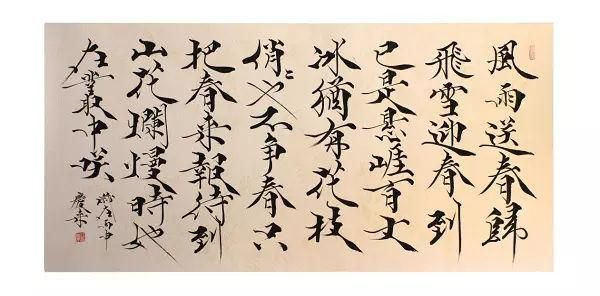 風雨送春歸
飛雪迎春到
已是悬崖百丈
冰猶有花枝
俏〻也不争春只
把春来報待到
山花爛熳時她
在叢中咲
歲在丙申
慶來